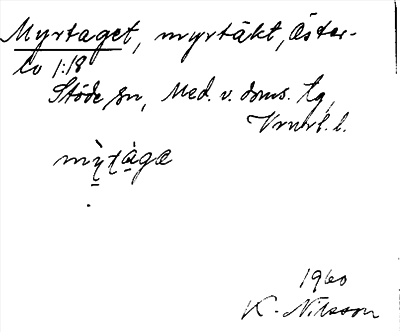 Myrtaget, myrtäkt, Öster-
lo 1:18
Stöde sn, Med. v. doms. tg,
Vrnrl. l.
mỳtàgæ
1960
K. Nilsson